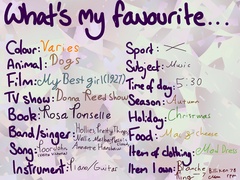 What's my favourite...
Colour: Varies
Animal: Dogs
Film: My Best girl (1927)
TV show: Donna Reed Show
Book: Rosa Ponselle
Band/singer: Hollies, Pretty Things
Annette Hanshaw
Song: Poor John
Instrument: Piano/Guitar
Sport: X
Subject: Music
Time of day: 5:30
Season: Autumn
Holiday: Christmas
Food: Mac n cheese
Item of clothing: Mod Dress
Item I own: Blanche
Ring